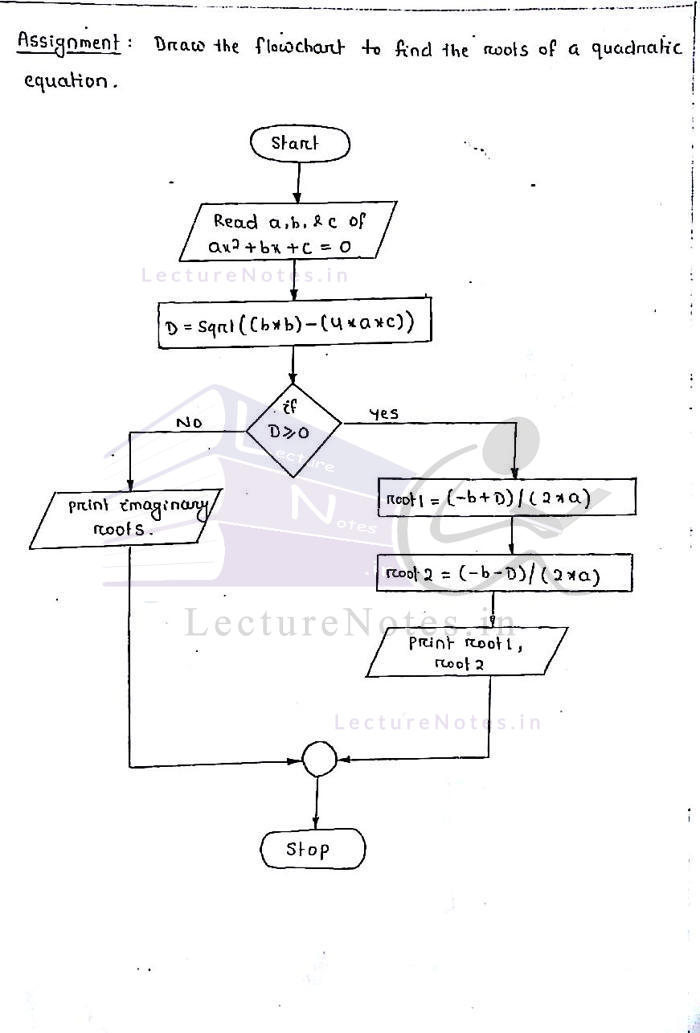 Assignment : Draw the flowchart to find the roots of a quadratic
equation.
Start
Read a,b, & c of
ax²+bx+c = 0
LectureNotes.in
D = Sqrt((b*b)-(4*a*c))
if
D≥0
NO
yes
Lecture
Notes
print imaginary
roots.
root1 = (-b+D)/(2*a)
root2 = (-b-D)/(2*a)
LectureNotes.in
Print root1,
root2
LectureNotes.in
Stop